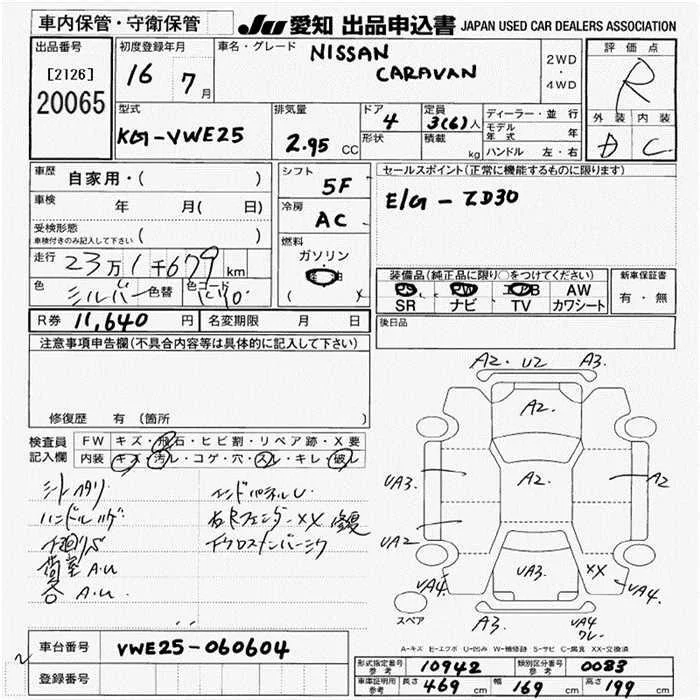 車内保管・守衛保管
JU 愛知 出品申込書 JAPAN USED CAR DEALERS ASSOCIATION
出品番号
[2126]
20065
初度登録年月
16 7月
車名・グレード
NISSAN
CARAVAN
2WD
・
4WD
評価点
R
外装 内装
D C
型式
KG-VWE25
排気量
2.95 CC
ドア
4
形状
定員
3(6)人
積載
kg
ディーラー・並行
モデル年式 年
ハンドル 左・右
車歴 自家用・( )
車検 年 月( 日)
受検形態
車検付きのみ記入して下さい ( )
走行 23万1千679km
色 シルバー 色替 色コード KY0
シフト
5F
冷房
AC
燃料
ガソリン
( ×
セールスポイント(正常に機能するものに限ります)
E/G-ZD30
装備品(純正品に限り○をつけてください)
PS PW エアB AW
SR ナビ TV カワシート
新車保証書
有・無
R券 11,640 円 名変期限 月 日
後日品
注意事項申告欄(不具合内容等は具体的に記入して下さい)
修復歴 有 (箇所 )
検査員記入欄
FW キズ・飛石・ヒビ割・リペア跡・X要
内装 キズ・汚レ・コゲ・穴・スレ・キレ・破レ
シートヘタリ
ハンドルハゲ
下廻りS
荷室A.U
A.U
エンドパネルU
右Rフェンダー××修復
A2. U2 A3.
A2.
UA3. A2. A2
UA2
UA4 UA3. ×× UA4.
スペア
A3. UA4
ワレ
A-キズ E-エクボ U-凹み W-補修跡 S-サビ C-腐食 XX-交換済
車台番号 VWE25-060604
登録番号
形式指定番号参考 10942 類別区分番号参考 0083
車庫証明用参考 長さ 469 cm 幅 169 cm 高さ 199 cm